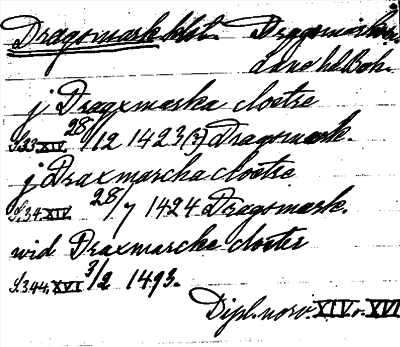 Dragsmark klst. Dragsmarks sn.
Lane hd. Boh.
j Dragxmarska cloetre
S. 33 XIV. 28/12 1423 (?) Dragsmark.
j Draxmarcha cloetre
S. 34 XIV. 28/7 1424 Dragsmark.
wid Draxmarcke closter
S. 344. XVI 3/2 1493.
Dipl. norv. XIV o. XVI